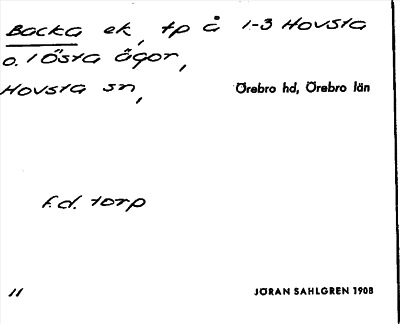 Backa ek, tp å 1-3 Hovsta
o. 1 Östa ägor,
Hovsta sn, Örebro hd, Örebro län
f.d. torp
11 JÖRAN SAHLGREN 1908